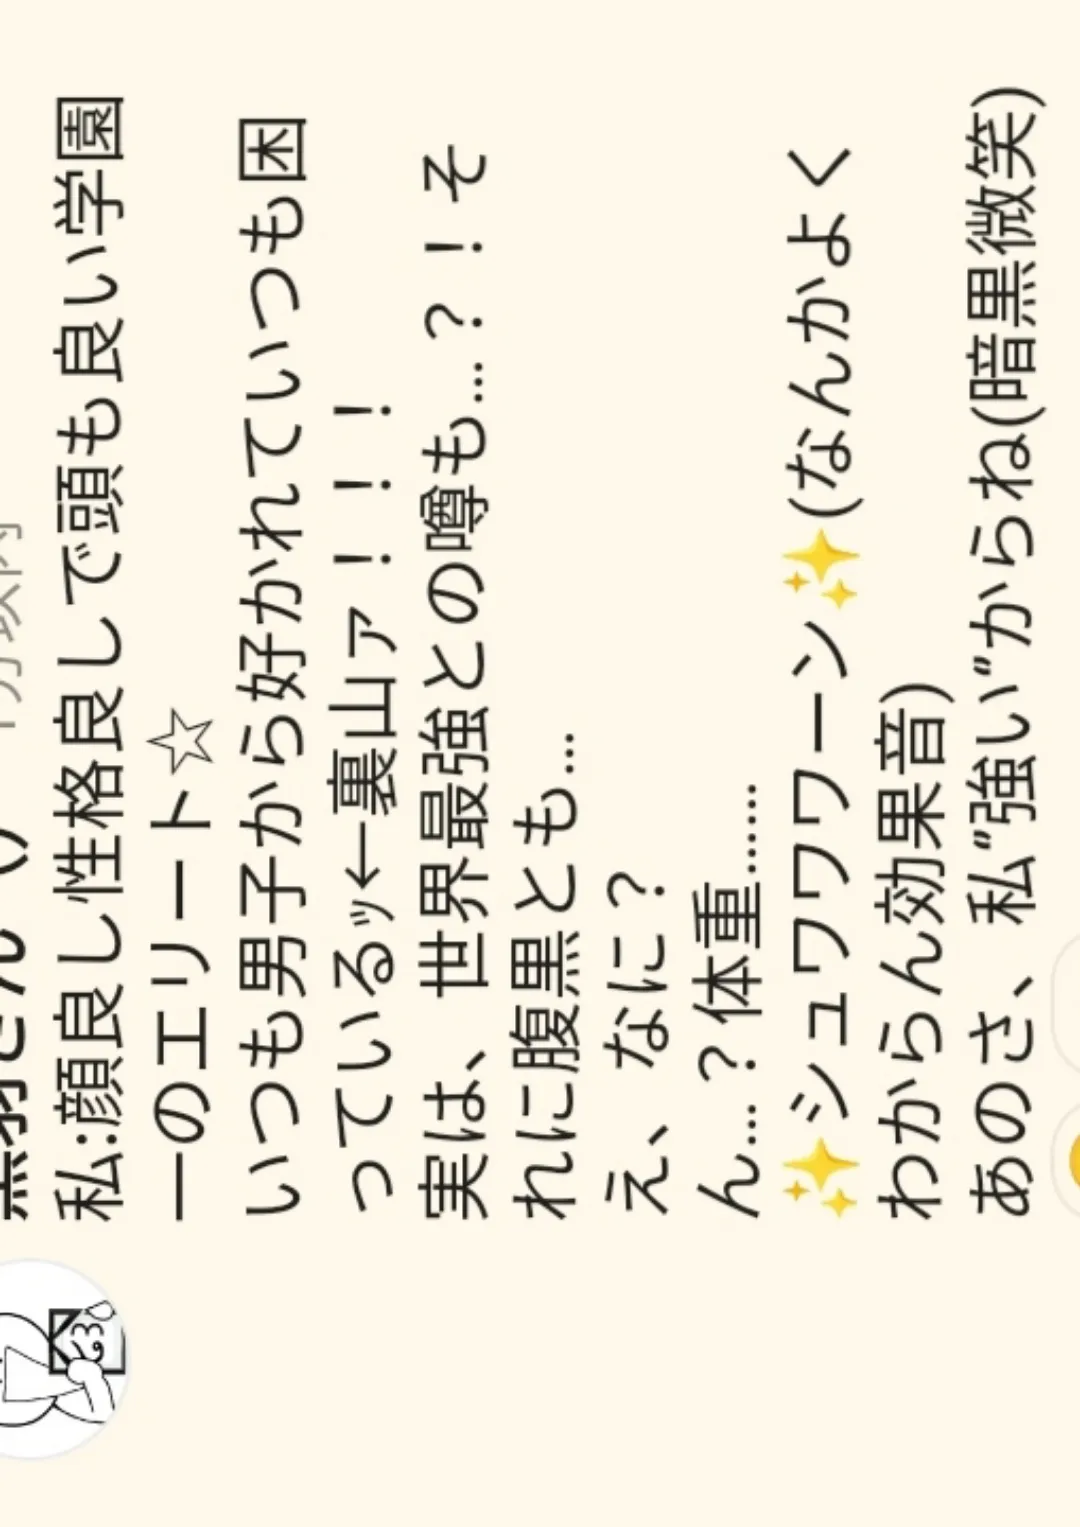 私:顔良し性格良しで頭も良い学園
一のエリート☆
いつも男子から好かれていつも困
っているッ←裏山ァ！！！
実は、世界最強との噂も…？！そ
れに腹黒とも…
え、なに？
ん…？体重……
✨シュワワワーン✨(なんかよく
わからん効果音)
あのさ、私“強い”からね(暗黒微笑)